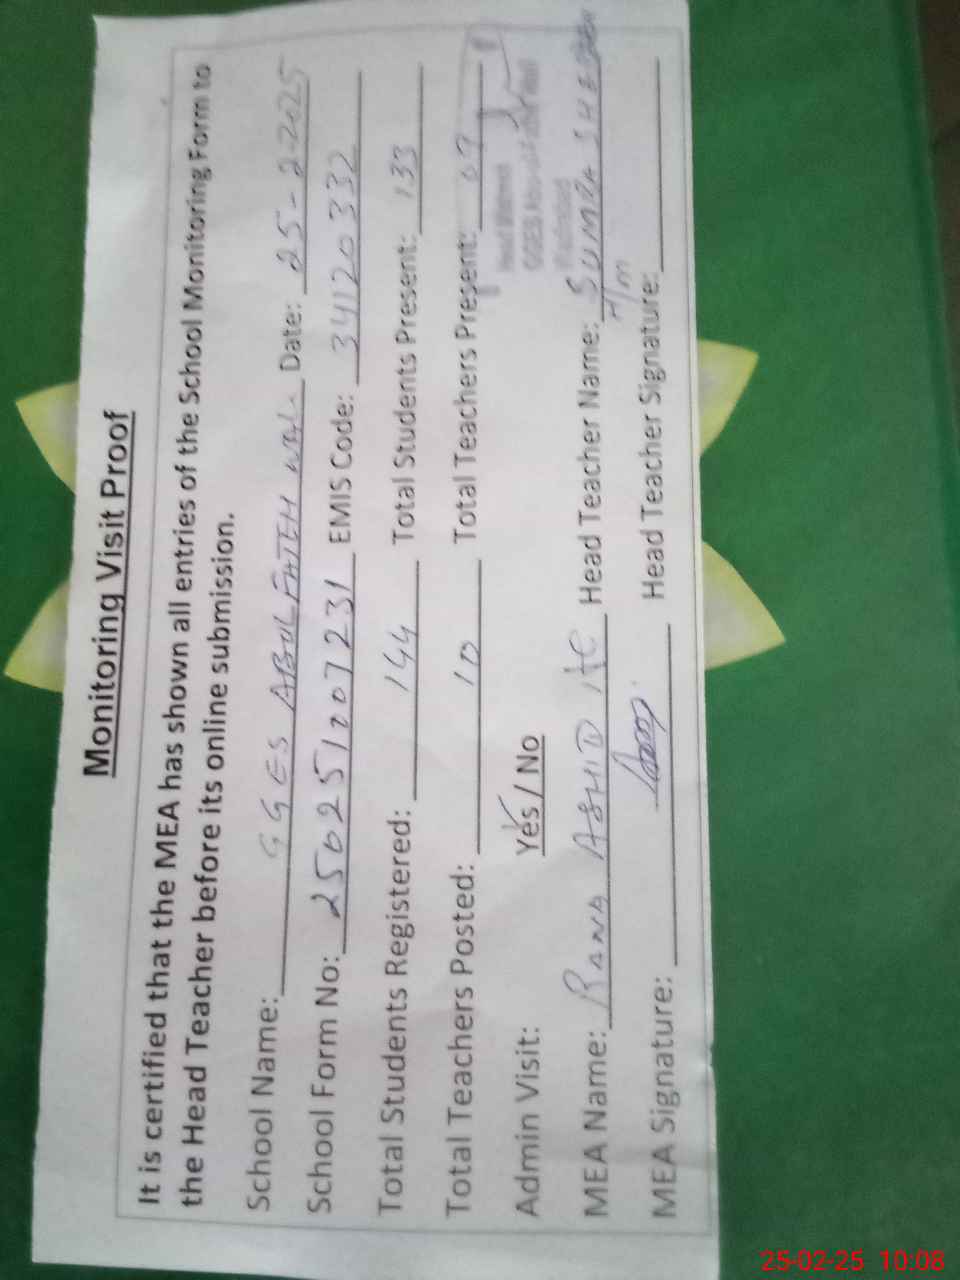 Monitoring Visit Proof
It is certified that the MEA has shown all entries of the School Monitoring Form to
the Head Teacher before its online submission.
School Name: GGES ABOL FATEH WALI Date: 25-2-2025
School Form No: 250251007231 EMIS Code: 34120332
Total Students Registered: 144 Total Students Present: 133
Total Teachers Posted: 10 Total Teachers Present: 09
Admin Visit: Yes / No
MEA Name: RANA Head Teacher Name:
H/m
MEA Signature: Head Teacher Signature:
25-02-25 10:08